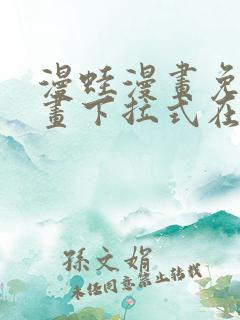 漫蛙漫畫免
畫下拉式在
孫文娟
未经同意禁止转载